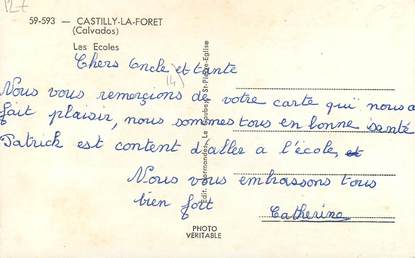 127
59-593 — CASTILLY-LA-FORET
(Calvados)
Les Ecoles
Chers Oncle et tante
(14)
Nous vous remerçions de votre carte qui nous a
fait plaisir, nous sommes tous en bonne santé
Patrick est content d'aller a l'école, et
Nous vous embrassons tous
bien fort
Catherine
Edit. Normandes, Le Goubey, St-Pierre-Eglise
PHOTO
VERITABLE